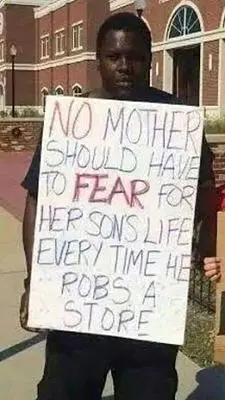 NO MOTHER
SHOULD HAVE
TO FEAR FOR
HER SONS LIFE
EVERY TIME HE
ROBS A
STORE